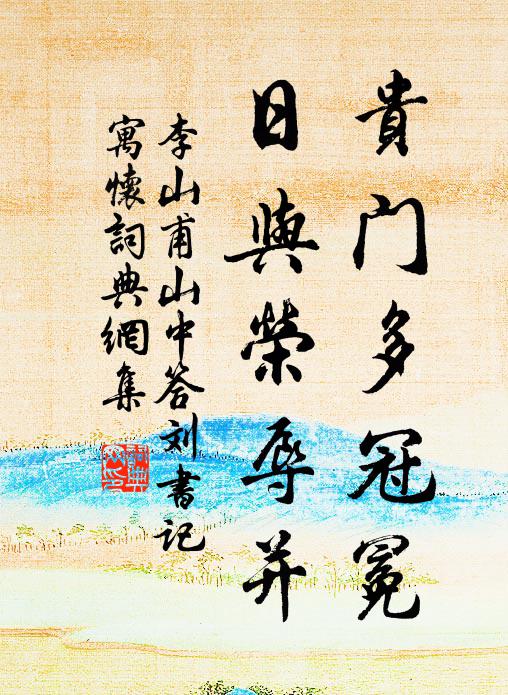 貴門多冠冕
日與榮辱并
李山甫山中答刘書记
寓懷詞典網集